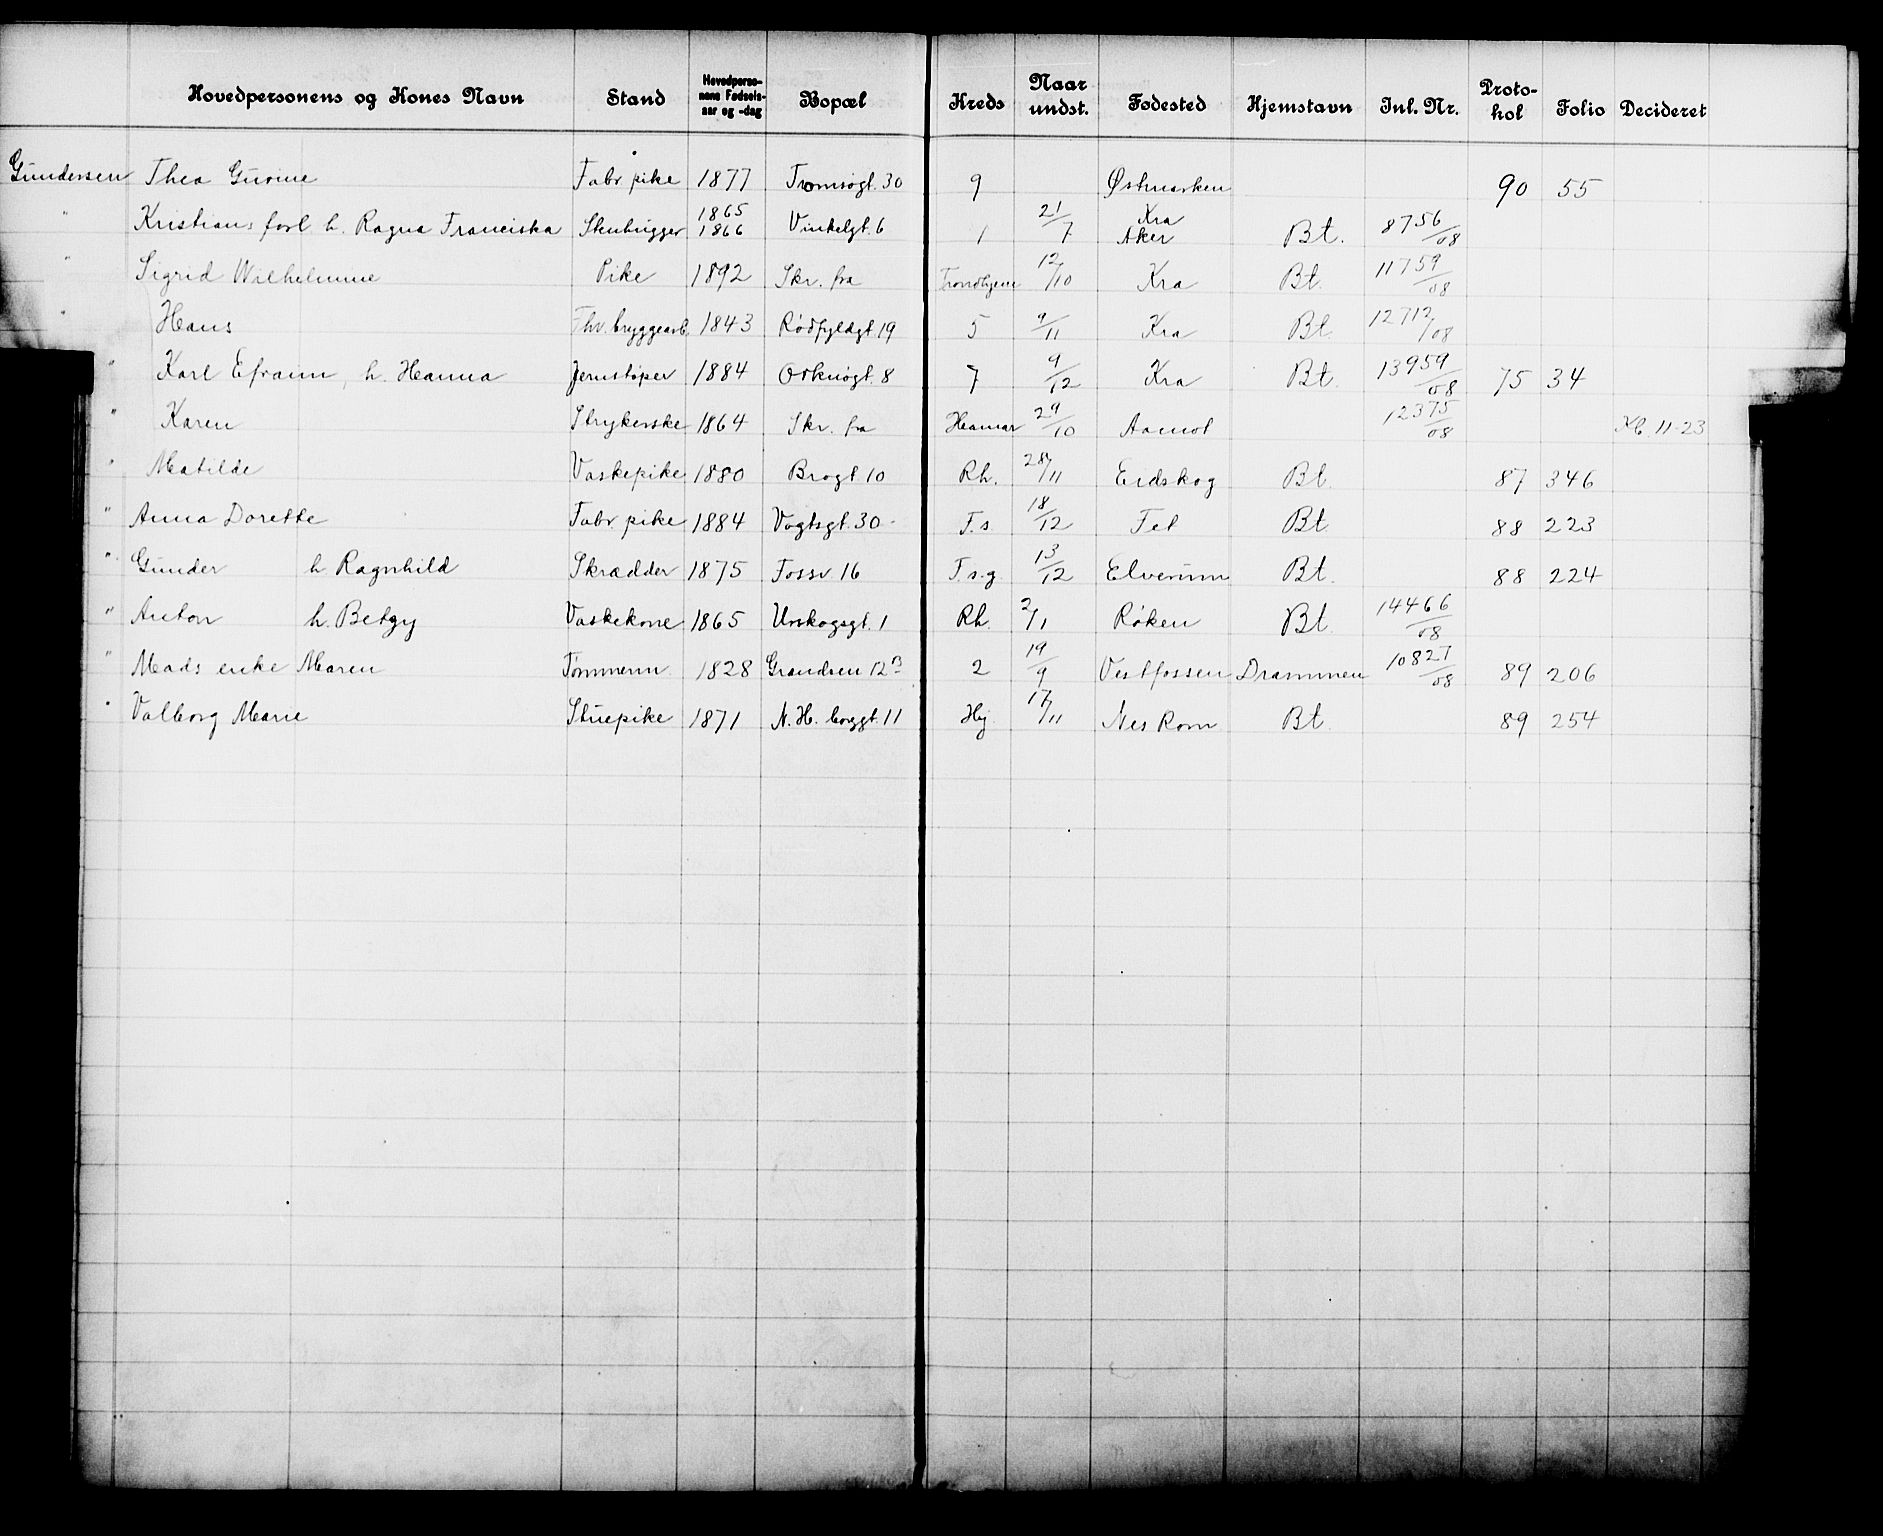 Hovedpersonens og Kones Navn Stand Hovedperso-nens Fødsels-aar og -dag Bopæl Kreds Naar undst. Fødested Hjemstavn Inl. Nr. Proto-kol Folio Decideret
Gundersen Thea Gurine Fabr pike 1877 Tromsøgt. 30 9 Østmarken 90 55
" Kristians forl h. Ragna Franciska Stenhugger 1865 1866 Vinkelgt. 6 1 21/7 Kra Aker Bt. 8756/08
" Sigrid Wilhelmine Pike 1892 Skr. fra Trondhjem 12/10 Kra Bt. 11759/08
" Hans Fhv. bryggearb. 1843 Rødfyldgt 19 5 9/11 Kra Bt. 12712/08
" Karl Efraim, h. Hanna Jernstøper 1884 Orknøgt. 8 7 9/12 Kra Bt. 13959/08 75 34
" Karen Strykerske 1864 Skr. fra Hamar 29/10 Aamot 12375/08 11-23
" Matilde Vaskepike 1880 Brogt 10 Rh. 28/11 Eidskog Bt. 87 346
" Anna Dorette Fabr. pike 1884 Vogtsgt. 30 T.s 18/12 Fet Bt 88 223
" Gunder h. Ragnhild Skrædder 1875 Fossv 16 T.s.g 13/12 Elverum Bt. 88 224
" Anton h. Betzy Vaskekone 1865 Urskogsgt. 1 Rh. 2/1 Røken Bt. 14466/08
" Mads enke Maren Tømmerm. 1828 Grændsen 12 B 2 19/9 Vestfossen Drammen 10827/08 89 206
" Valborg Marie Stuepike 1871 N. H. borggt. 11 Hj 17/11 Nes Rom Bt. 89 254